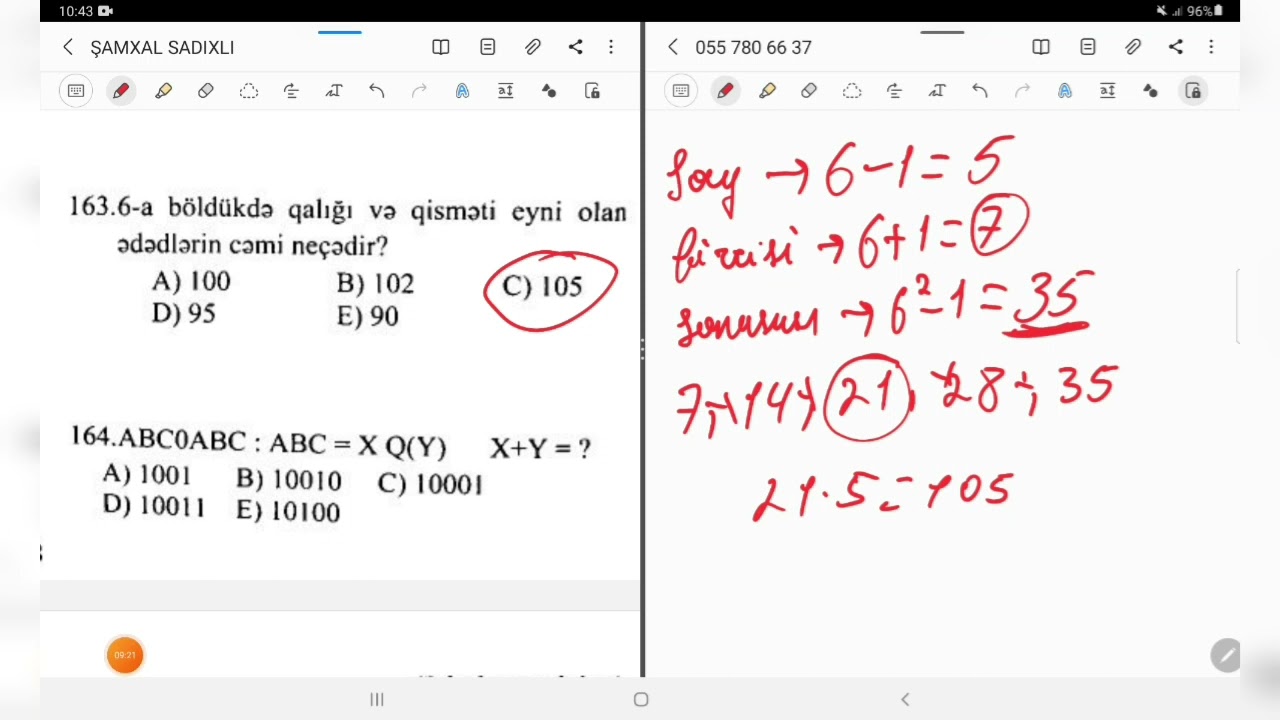 10:43
96%
ŞAMXAL SADIXLI
055 780 66 37
163.6-a böldükdə qalığı və qisməti eyni olan
ədədlərin cəmi neçədir?
A) 100 B) 102 C) 105
D) 95 E) 90
164.ABC0ABC : ABC = X Q(Y) X+Y = ?
A) 1001 B) 10010 C) 10001
D) 10011 E) 10100
09:21
Say → 6-1=5
birincisi → 6+1=7
sonuncusu → 6²-1=35
7, 14, 21, 28, 35
21·5=105